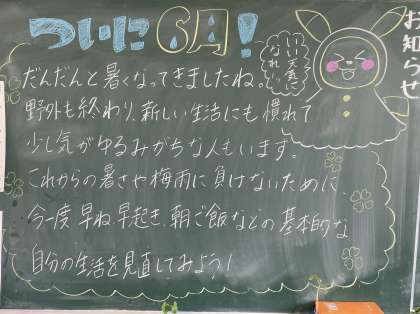 お知らせ
ついに6月!
いい天気に
なれ〜っ
だんだんと暑くなってきましたね。
野外も終わり、新しい生活にも慣れて
少し気がゆるみがちな人もいます。
これからの暑さや梅雨に負けないために、
今一度早ね早起き、朝ご飯などの基本的な
自分の生活を見直してみよう!